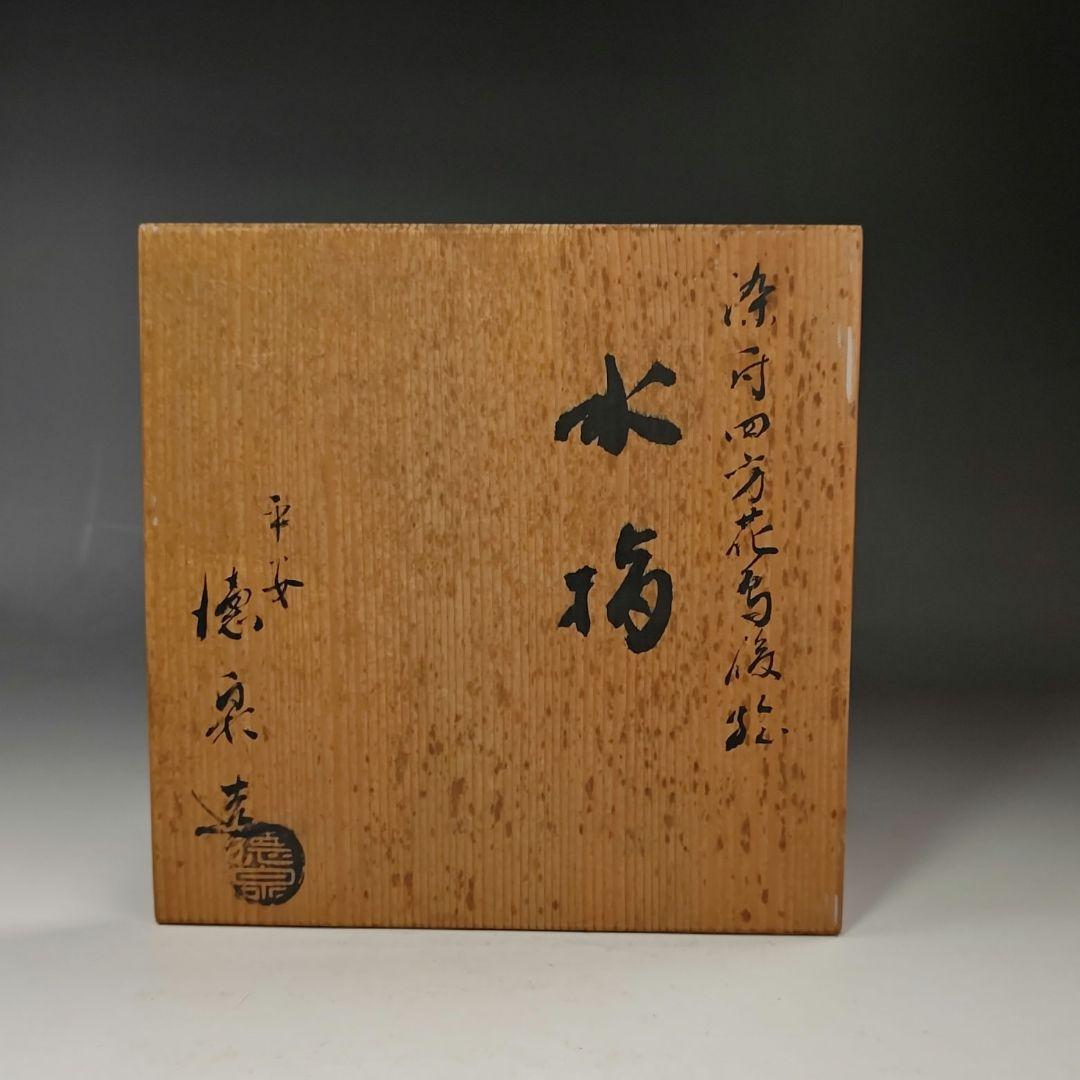 染付四方花鳥後絵
水指
平安
徳泉造
徳泉